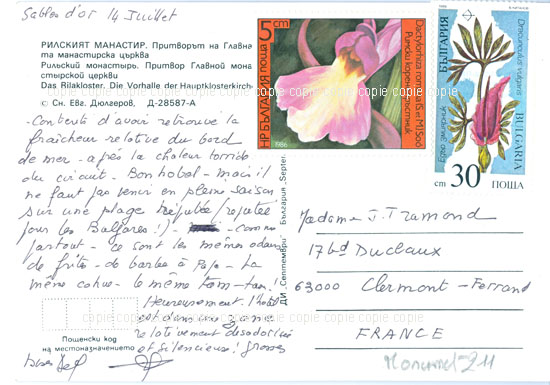 Sables d'or 14 Juillet
РИЛСКИЯТ МАНАСТИР. Притворът на Главна
та манастирска църква
Рильский монастырь. Притвор Главной мона
стырской церкви
Das Rilakloster. Die Vorhalle der Hauptklosterkirch
© Сн. Ева. Дюлгеров, Д-28587-А
- Contents d'avoir retrouvé la
fraîcheur relative du bord
de mer - après la chaleur torride
du circuit. Bon hôtel - mais il
ne faut pas venir en pleine saison
sur une plage réputée (réputée
pour les Bulgares!) - comme
partout - ce sont les mêmes odeurs
de frites - de barbe à Papa - La
même cohue - le même tam-tam!
Heureusement l'hôtel
est dans une zone
relativement désodorisée
et silencieuse! Grosses
Bises
Пощенски код
на местоназначението
ДИ „Септември" България „Septem
НР БЪЛГАРИЯ ПОЩА
5 cm
1986
Dactylorhiza romana (S et M) Soo
БЪЛГАРИЯ
BULGARIA
Dracunculus vulgaris
cm 30 ПОЩА
Madame J. Tramond
17 bd Duclaux
63000 Clermont-Ferrand
FRANCE
copie copie copie copie copie copie